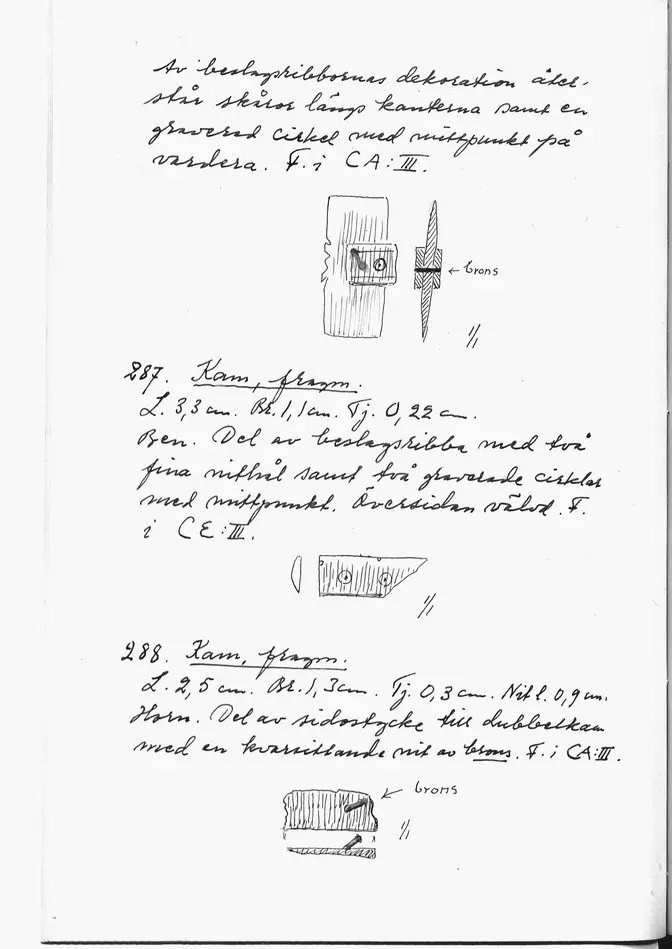 Av beslagsribbornas dekoration åter-
står skåror längs kanterna samt en
graverad cirkel med mittpunkt på
vardera. F. i CA:III.
← brons
1/1
287. Kam, fragm.
L. 3,3 cm. Br. 1,1 cm. Tj. 0,22 cm.
Ben. Del av beslagsribba med två
fina nithål samt två graverade cirklar
med mittpunkt. Översidan välvd. F.
i CE:III.
1/1
288. Kam, fragm.
L. 2,5 cm. Br. 1,3 cm. Tj. 0,3 cm. Nit l. 0,9 cm.
Horn. Del av sidostycke till dubbelkam
med en kvarsittande nit av brons. F. i CA:III.
← brons
1/1